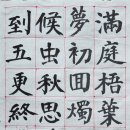 滿庭梧葉
夢初囬燭
候虫秋思
到五更終